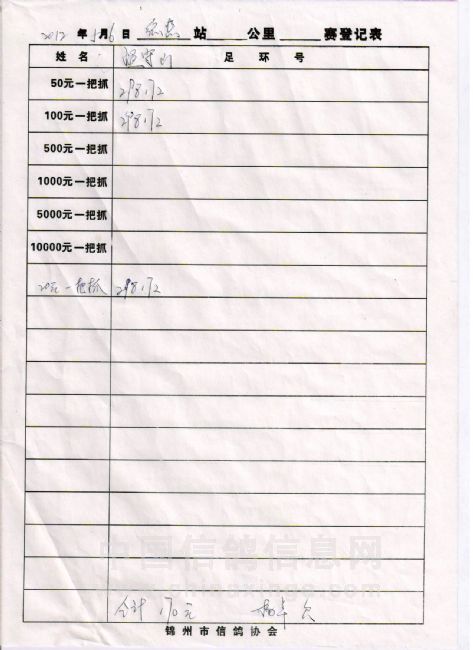 2012 年 5 月 6 日 站 公里 赛登记表
姓名 足环号
50元一把抓 298172
100元一把抓 298172
500元一把抓
1000元一把抓
5000元一把抓
10000元一把抓
20元一把抓 298172
中国信鸽信息网
www.chinaxinge.com
合计 170元
锦州市信鸽协会